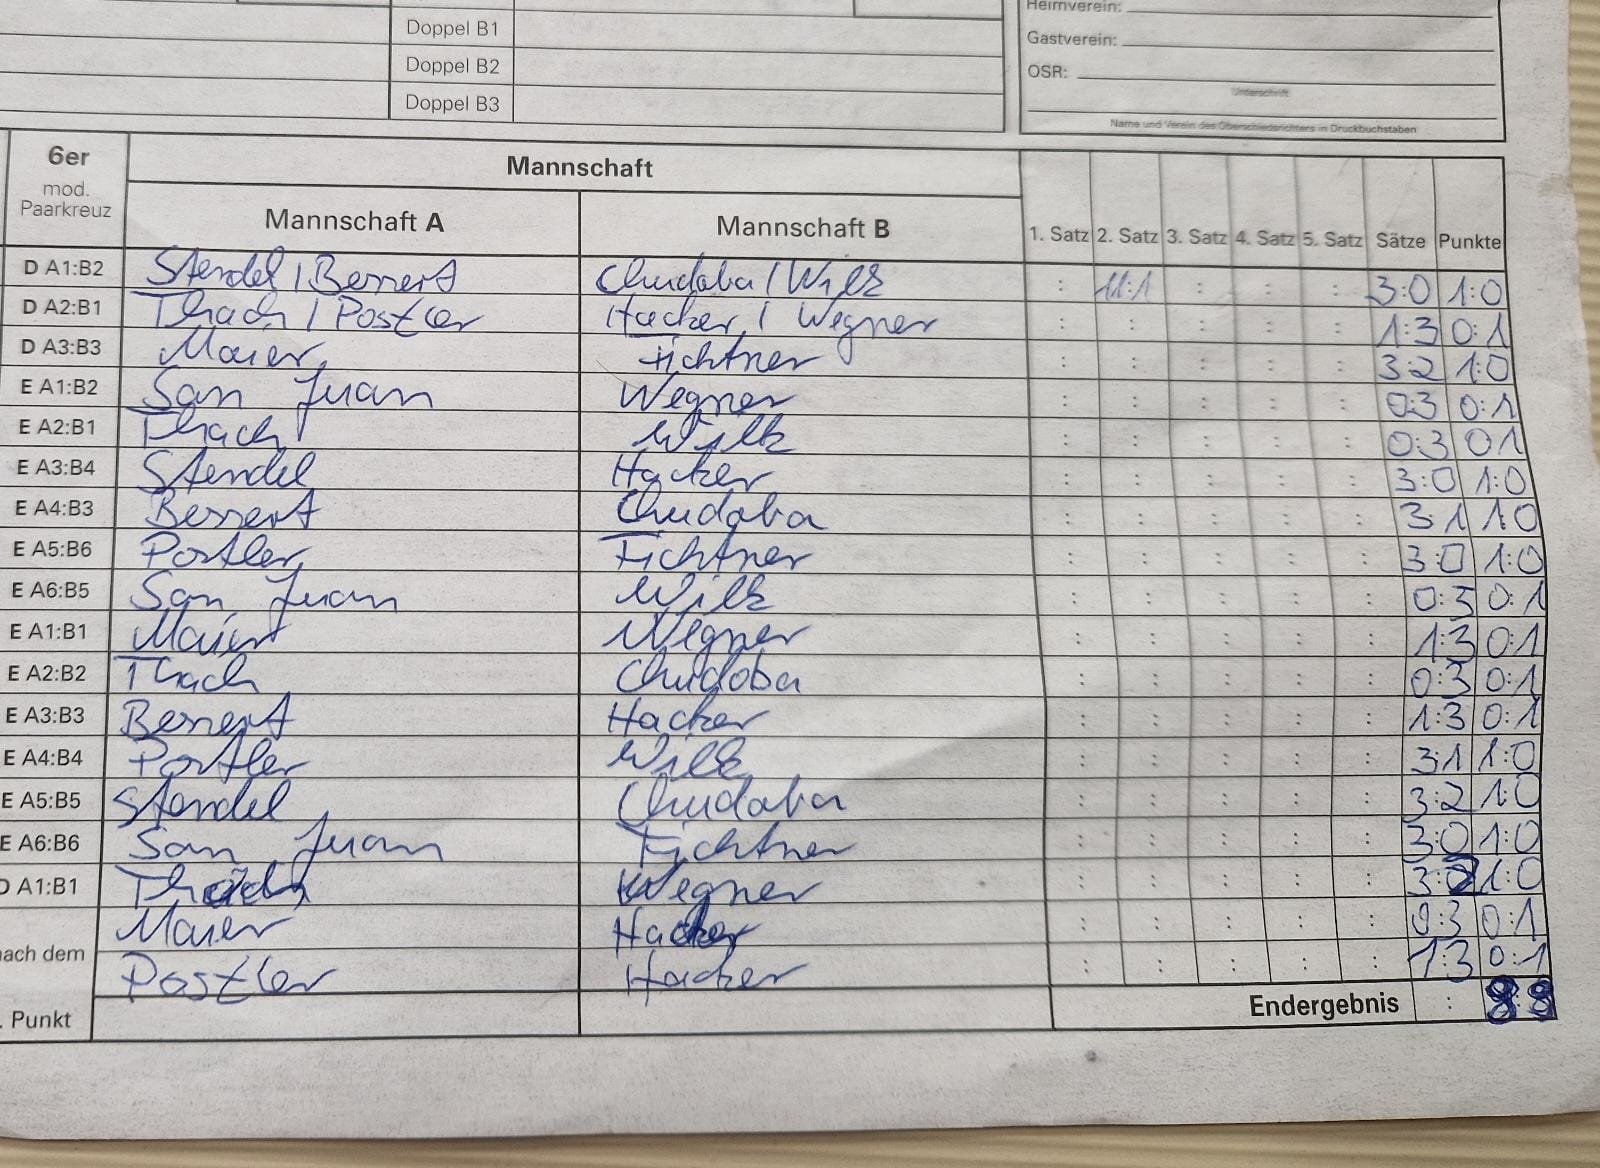 Doppel B1
Doppel B2
Doppel B3
Heimverein:
Gastverein:
OSR:
Unterschrift
Name und Verein des Oberschiedsrichters in Druckbuchstaben
6er
mod.
Paarkreuz
Mannschaft
Mannschaft A
Mannschaft B
1. Satz 2. Satz 3. Satz 4. Satz 5. Satz Sätze Punkte
D A1:B2 Stendel / Bessert Chudoba / Wilk : 11:1 : : : 3:0 1:0
D A2:B1 Thach / Postler Hacker / Wegner : : : : : 1:3 0:1
D A3:B3 Maier, Fichtner : : : : : 3:2 1:0
E A1:B2 San Juan Wegner : : : : : 0:3 0:1
E A2:B1 Thach Wilk : : : : : 0:3 0:1
E A3:B4 Stendel Hacker : : : : : 3:0 1:0
E A4:B3 Bessert Chudoba : : : : : 3:1 1:0
E A5:B6 Postler Fichtner : : : : : 3:0 1:0
E A6:B5 San Juan Wilk : : : : : 0:3 0:1
E A1:B1 Maier Wegner : : : : : 1:3 0:1
E A2:B2 Thach Chudoba : : : : : 0:3 0:1
E A3:B3 Bessert Hacker : : : : : 1:3 0:1
E A4:B4 Postler Wilk : : : : : 3:1 1:0
E A5:B5 Stendel Chudoba : : : : : 3:2 1:0
E A6:B6 San Juan Fichtner : : : : : 3:0 1:0
D A1:B1 Thach Wegner : : : : : 3:2 1:0
Maier Hacker : : : : : 0:3 0:1
nach dem
Postler Hacker : : : : : 1:3 0:1
. Punkt
Endergebnis : 9:9